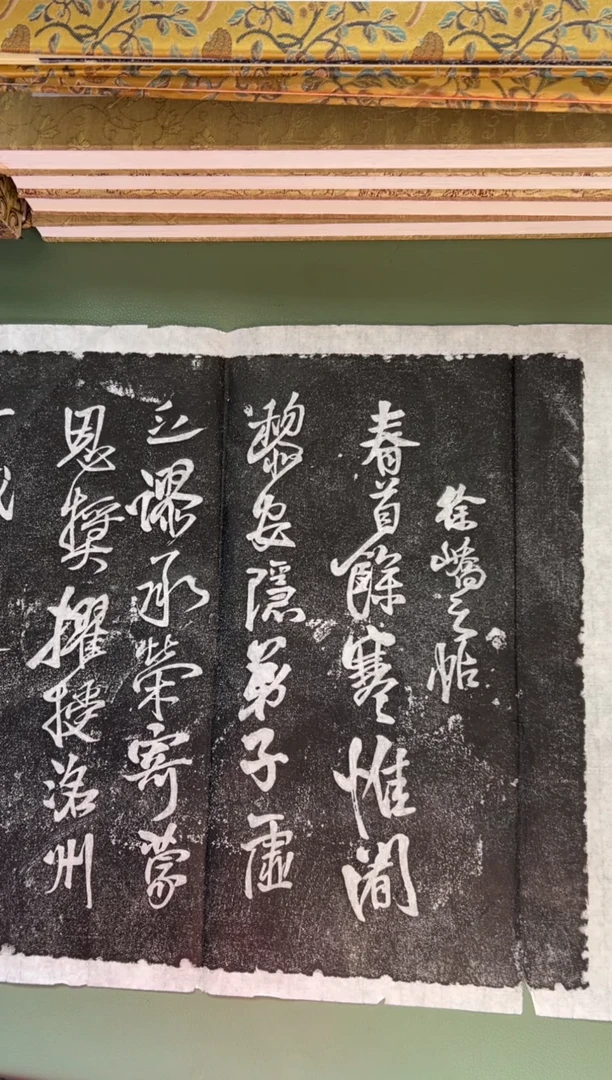 徐嶠之帖
春首餘寒惟闍
黎安隱弟子虛
乏謬承榮寄蒙
恩奬擢授洺州